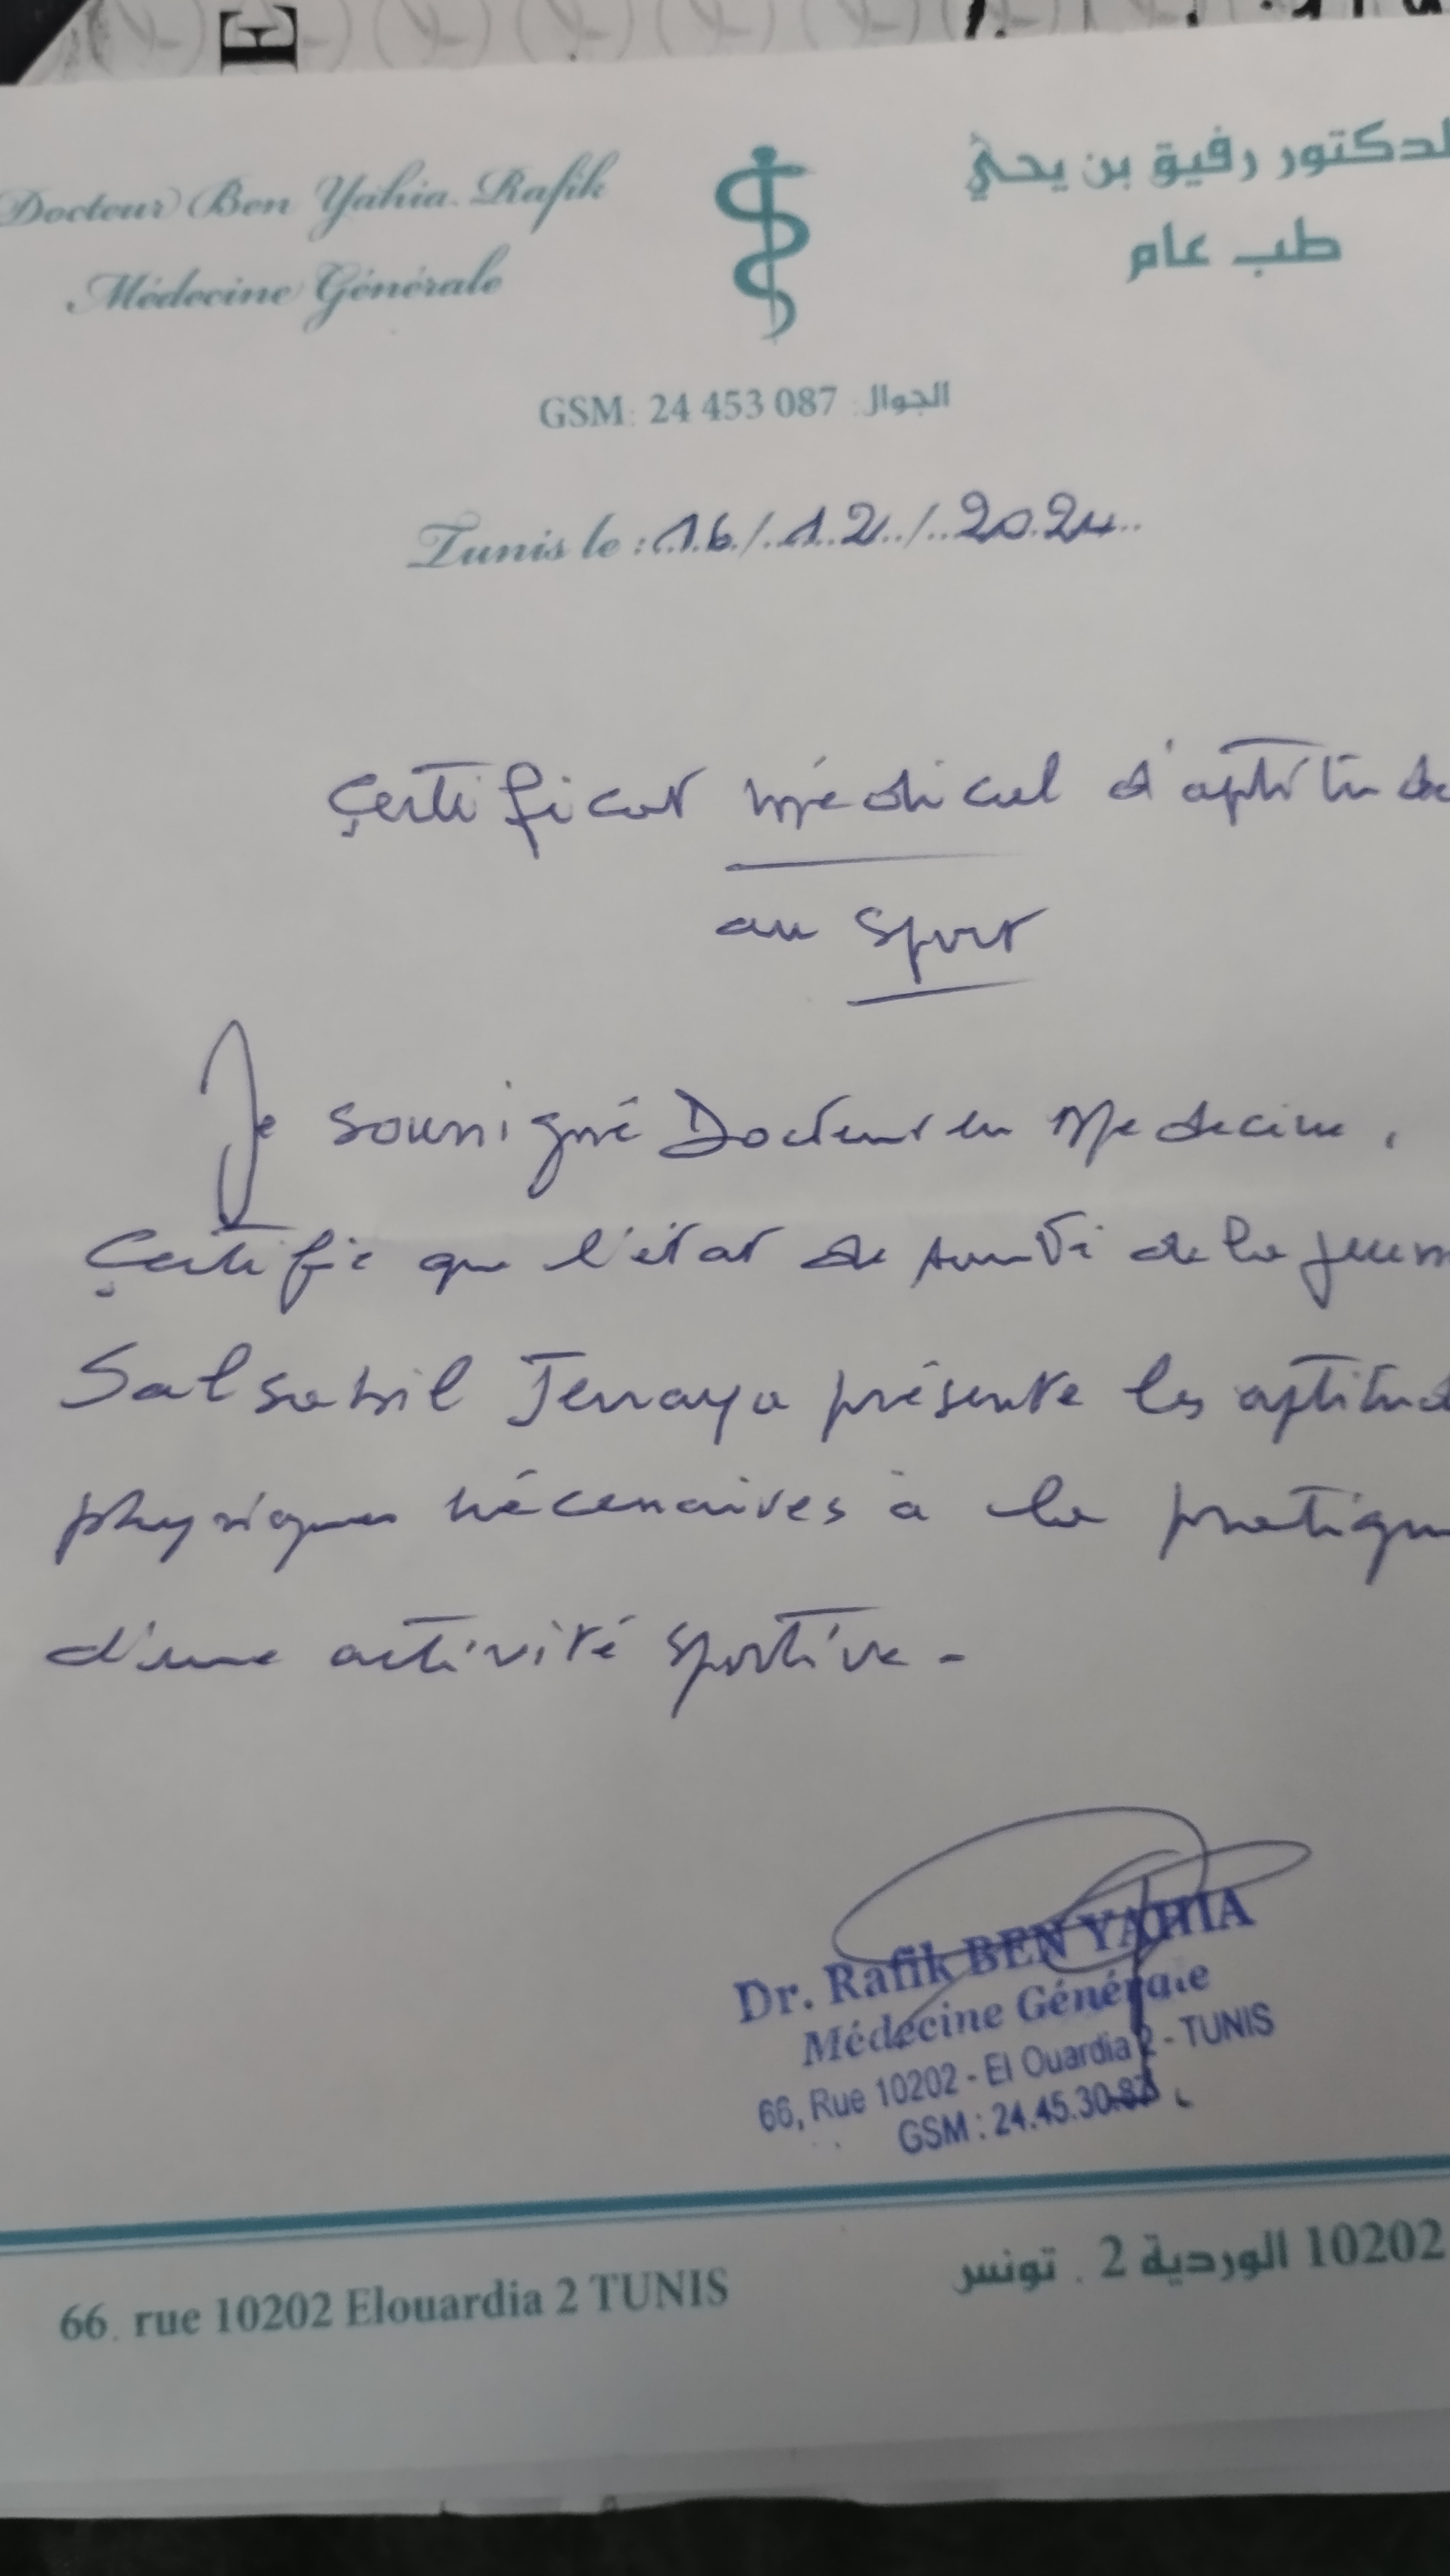 E
Docteur Ben Yahia Rafik
الدكتور رفيق بن يحيي
Médecine Générale
طب عام
GSM: 24 453 087 الجوال:
Tunis le : 16/12/2024
Certificat médical d'aptitude
au Sport
Je soussigné Docteur en Medecine,
Certifie que l'état de santé de la jeune
Salsabil Jerraya présente les aptitud
physiques nécessaires à la pratique
d'une activité sportive -
Dr. Rafik BEN YAHIA
Médecine Générale
66, Rue 10202 - El Ouardia 2 - TUNIS
GSM : 24.45.30.87
66. rue 10202 Elouardia 2 TUNIS
10202 الوردية 2 . تونس